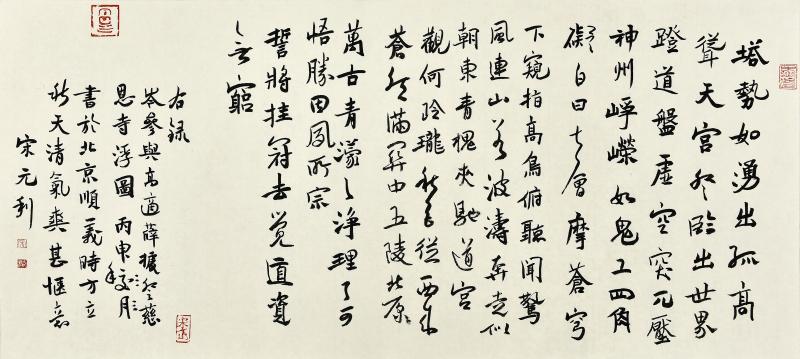 塔勢如湧出孤高
聳天宮登臨出世界
蹬道盤虛空突兀壓
神州崢嶸如鬼工四角
礙白日七層摩蒼穹
下窺指高鳥俯聽聞驚
風連山若波濤奔走似
朝東青槐夾馳道宮
觀何玲瓏秋色從西來
蒼然滿關中五陵北原
萬古青濛〻淨理了可
悟勝因夙所宗
誓將挂冠去覺道資
無窮
右録
岑參與高適薛據登慈
恩寺浮圖 丙申月
書於北京順義時方立
秋天清氣爽甚愜意
宋元利